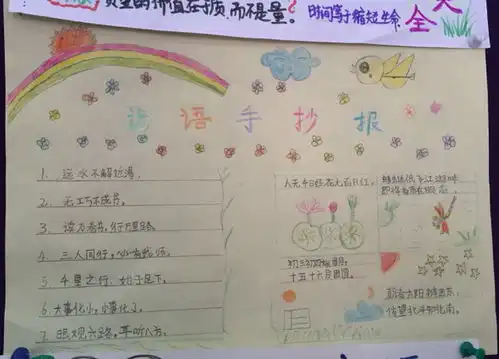 贵重的价值在于质,而不是量。
时间等于缩短生命
全
谚语手抄报
1、远水不解近渴。
2、无巧不成书。
3、读万卷书,行万里路。
4、三人同行,必有我师。
5、千里之行,始于足下。
6、大事化小,小事化了。
7、眼观六路,耳听八方。
人无千日好,花无百日红。
初三初四娥眉月,
十五十六月团圆。
朝看太阳辨西东,
夜望北斗知北南。